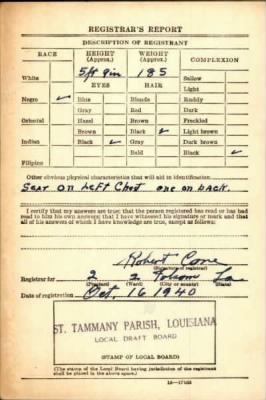 REGISTRAR'S REPORT
DESCRIPTION OF REGISTRANT
RACE HEIGHT (Approx.) WEIGHT (Approx.) COMPLEXION
5ft 9in 185
White Sallow
EYES HAIR Light
Negro ✓ Blue Blonde Ruddy
Gray Red Dark
Oriental Hazel Brown Freckled
Brown Black ✓ Light brown
Indian Black ✓ Gray Dark brown
Bald Black ✓
Filipino
Other obvious physical characteristics that will aid in identification
Scar on Left Chest one on back.
I certify that my answers are true; that the person registered has read or has had
read to him his own answers; that I have witnessed his signature or mark and that
all of his answers of which I have knowledge are true, except as follows:
Robert Cone
(Signature of registrar)
Registrar for 2 2 Folsom La
(Ward) (City or county) (State)
Date of registration Oct. 16 1940
ST. TAMMANY PARISH, LOUISIANA
LOCAL DRAFT BOARD
(STAMP OF LOCAL BOARD)
(The stamp of the Local Board having jurisdiction of the registrant
shall be placed in the above space.)